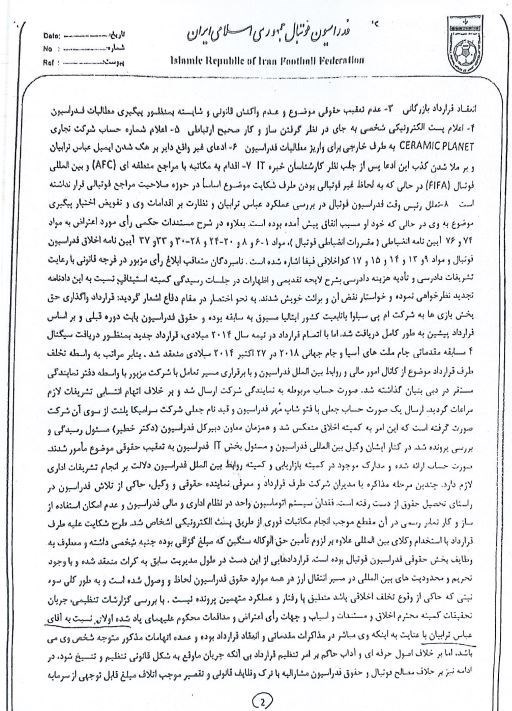 فدراسیون فوتبال جمهوری اسلامی ایران
Islamic Republic of Iran Football Federation
Date: تاریخ:
No : شماره:
Ref : پیوست:
انعقاد قرارداد بازرگانی ۳- عدم تعقیب حقوقی موضوع و عدم واکنش قانونی و شایسته بمنظور پیگیری مطالبات فدراسیون
۴- اعلام پست الکترونیکی شخصی به جای در نظر گرفتن ساز و کار صحیح ارتباطی ۵- اعلام شماره حساب شرکت تجاری
CERAMIC PLANET به طرف خارجی برای واریز مطالبات فدراسیون ۶- ادعای غیر واقع دایر بر هک شدن ایمیل عباس ترابیان
و بر ملا شدن کذب این ادعا پس از جلب نظر کارشناسان خبره IT ۷- اقدام به مکاتبه با مراجع منطقه ای (AFC) و بین المللی
فوتبال (FIFA) در حالی که به لحاظ غیر فوتبالی بودن طرف شکایت موضوع اساساً در حوزه صلاحیت مراجع فوتبالی قرار نداشته
است ۸-تعلل رئیس وقت فدراسیون فوتبال در بررسی عملکرد عباس ترابیان و نظارت بر اقدامات وی و تفویض اختیار پیگیری
موضوع به وی در حالی که خود او مسبب اتفاق پیش آمده بوده است. بعلاوه در شرح مستندات حکمی رأی مورد اعتراض به مواد
۷۴ و ۷۶ آیین نامه انضباطی ( مقررات انضباطی فوتبال )، مواد ۱-۶ و ۸-۲۰-۲۴ و ۲۸-۳۰ و ۳۳ و ۳۷ آیین نامه اخلاق فدراسیون
فوتبال و مواد ۹ و ۱۳ و ۱۴ و ۱۵ و ۱۷ کداخلاقی فیفا اشاره شده است. نامبردگان متعاقب ابلاغ رأی مزبور در فرجه قانونی با رعایت
تشریفات دادرسی و تأدیه هزینه دادرسی بشرح لایحه تقدیمی و اظهارات در جلسات رسیدگی کمیته استیناف نسبت به این دادنامه
تجدید نظرخواهی نموده و خواستار نقض آن و برائت خویش شدند. به نحو اختصار در مقام دفاع اشعار گردید: قرارداد واگذاری حق
پخش بازی ها به شرکت ام پی سیلوا باتابعیت کشور ایتالیا مسبوق به سابقه بوده و حقوق فدراسیون بابت دوره قبلی و بر اساس
قرارداد پیشین به طور کامل دریافت شد. اما با اتمام قرارداد در نیمه سال ۲۰۱۴ میلادی، قرارداد جدید بمنظور دریافت سیگنال
۴ مسابقه مقدماتی جام ملت های آسیا و جام جهانی ۲۰۱۸ در ۲۷ اکتبر ۲۰۱۴ میلادی منعقد شد . بنابر مراتب به واسطه تخلف
طرف قرارداد موضوع از کانال امور مالی و روابط بین الملل فدراسیون و با برقراری مسیر تعامل با شرکت مزبور با واسطه دفتر نمایندگی
مستقر در دبی بنیان گذاشته شد. صورت حساب مربوطه به نمایندگی شرکت ارسال شد و بر خلاف اتهام انتسابی تشریفات لازم
مراعات گردید. ارسال یک صورت حساب جعلی با فتو شاپ مُهر فدراسیون و قید نام جعلی شرکت سرامیکا پلنت از سوی آن شرکت
صورت گرفته است که این امر به کمیته اخلاق منعکس شد و همزمان معاون دبیرکل فدراسیون (دکتر خطیر) مسئول رسیدگی و
بررسی پرونده شد. در کنار ایشان وکیل بین المللی فدراسیون و مسئول بخش IT فدراسیون به تعقیب حقوقی موضوع مأمور شدند.
صورت حساب ارائه شده و مدارک موجود در کمیته بازاریابی و کمیته روابط بین الملل فدراسیون دلالت بر انجام تشریفات اداری
لازم دارد. چندین مرحله مذاکره با مدیران شرکت طرف قرارداد و معرفی نماینده حقوقی و وکیل، حاکی از تلاش فدراسیون در
راستای تحصیل حقوق از دست رفته است. فقدان سیستم اتوماسیون واحد در نظام اداری و مالی فدراسیون و عدم امکان استفاده از
ساز و کار نمابر رسمی در آن مقطع موجب انجام مکاتبات فوری از طریق پست الکترونیکی اشخاص شد. طرح شکایت علیه طرف
قرارداد با استخدام وکلای بین المللی علاوه بر لزوم تأمین حق الوکاله سنگین که مبلغ گزافی بوده جنبه شخصی داشته و معطوف به
وظایف بخش حقوقی فدراسیون فوتبال بوده است. قراردادهایی از این دست در طول مدیریت سابق به کرات منعقد شده و با وجود
تحریم و محدودیت های بین المللی در مسیر انتقال ارز در همه موارد حقوق فدراسیون لحاظ و وصول شده است و به طور کلی سوء
نیتی که حاکی از وقوع تخلف اخلاقی باشد منطبق با رفتار و عملکرد متهمین پرونده نیست . با بررسی گزارشات تنظیمی، جریان
تحقیقات کمیته محترم اخلاق و مستندات و اسباب و جهات رأی معترض و مدافعات محکوم علیهمای یاد شده اولاً: نسبت به آقای
عباس ترابیان با عنایت به اینکه وی مباشر در مذاکرات مقدماتی و انعقاد قرارداد بوده و عمده اتهامات مذکور متوجه شخص وی می
باشد، اما بر خلاف اصول حرفه ای و آداب حاکم بر امر تنظیم قرارداد بی آنکه جریان ماوقع به شکل قانونی تنظیم و تنسیخ شود، در
ادامه نیز بر خلاف مصالح فوتبال و حقوق فدراسیون مشارالیه با ترک وظایف قانونی و تقصیر موجب اتلاف مبلغ قابل توجهی از سرمایه
2